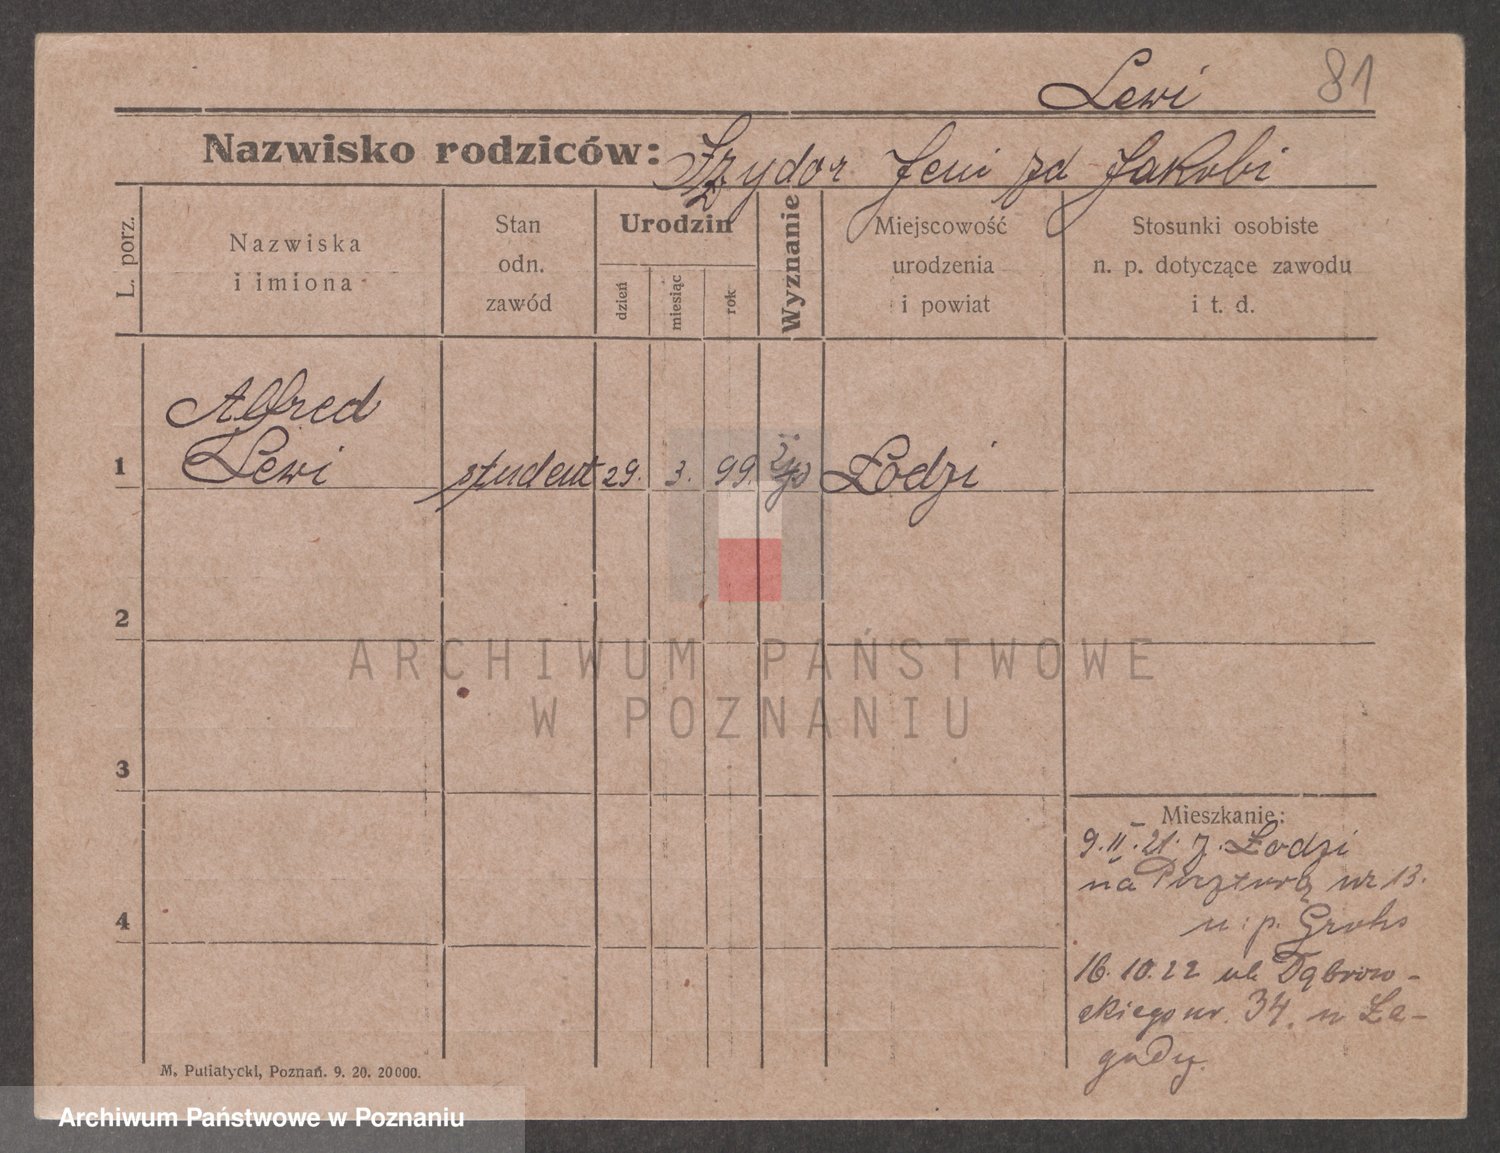 Lewi 81
Nazwisko rodziców: Izydor Jeni zd Jakobi
L. porz.
Nazwiska
i imiona
Stan
odn.
zawód
Urodzin
dzień
miesiąc
rok
Wyznanie
Miejscowość
urodzenia
i powiat
Stosunki osobiste
n. p. dotyczące zawodu
i t. d.
Alfred
1 Lewi student 29. 3. 99. Łodzi
2
3
4
Mieszkanie:
9.II.21. z Łodzi
na nr 13.
u p. Grohs
16.10.22 ul. Dąbrow-
skiego nr. 34. u Ła-
gody.
M. Putiatycki, Poznań. 9. 20. 20000.
ARCHIWUM PAŃSTWOWE
W POZNANIU
Archiwum Państwowe w Poznaniu